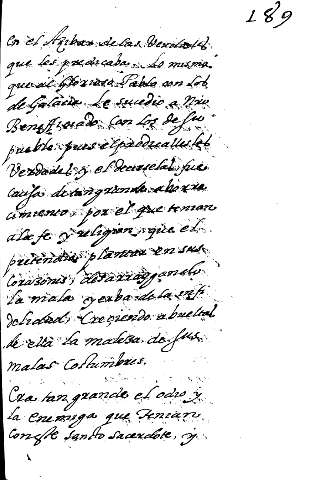 189
en el Azibar de las Verdades
que les predicaba. Lo mismo
que al Glorioso Pablo con los
de Galacia. Le sucedio a Nro
Benefficiado Con los de su
pueblo pues el predicalles las
Verdades y el decirselas, fue
causa de tan grande aborre
cimiento, por el que tenian
a la fe y religion, que el
pretendia plantar en sus
Corazones, desarraygando
la mala yerba de la infi
delidad, Creciendo a bueltas
de ella la maleza de sus
malas Costumbres.
Era tan grande el odio y
la enemiga que tenian
con este santo sacerdote, y